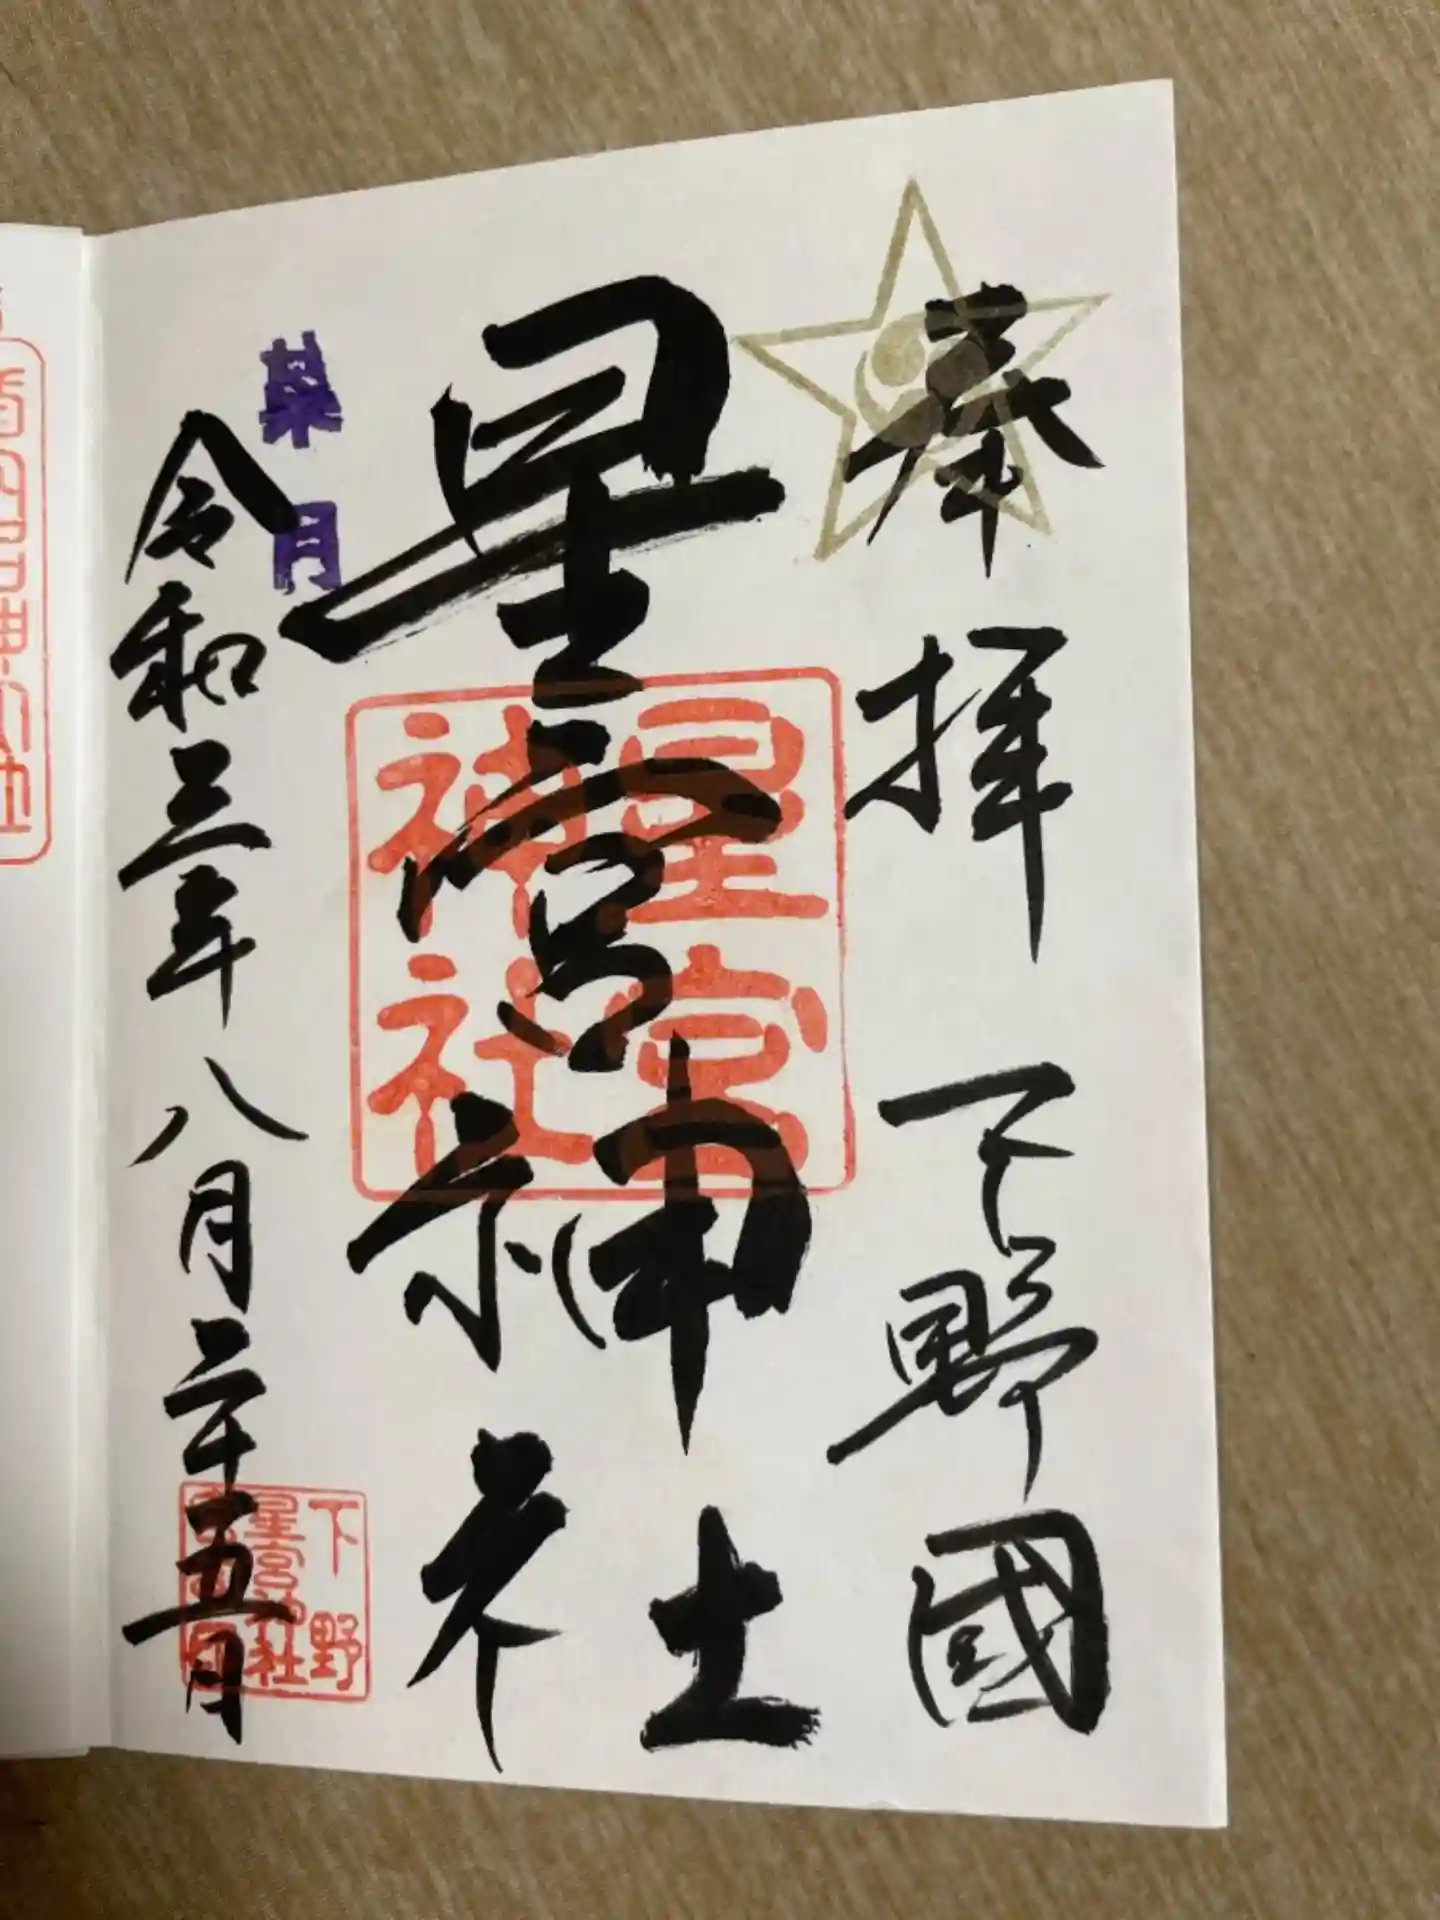 奉拝 下野國
星宮神社
星宮
神社
葉月
令和三年八月二十五日
下野
星宮神社